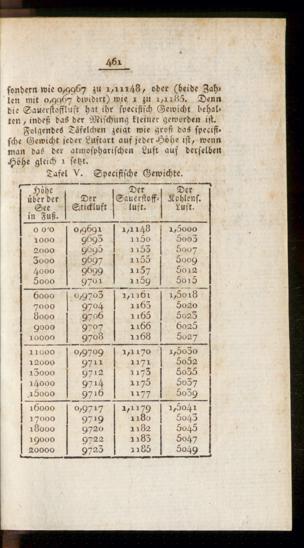 461
sondern wie 0,9967 zu 1,11148, oder (beide Zah-
len mit 0,9967 dividirt) wie 1 zu 1,1185. Denn
die Sauerstoffluft hat ihr specifisch Gewicht behal-
ten, indeß das der Mischung kleiner geworden ist.
Folgendes Täfelchen zeigt wie groß das specifi-
sche Gewicht jeder Luftart auf jeder Höhe ist, wenn
man das der atmosphärischen Luft auf derselben
Höhe gleich 1 setzt.
Tafel V. Specifische Gewichte.
Höhe über der See in Fuß. Der Stickluft Der Sauerstoff- luft. Der Kohlens. Luft.
000 0,9691 1,1148 1,5000
1000 9693 1150 5003
2000 9695 1153 5007
3000 9697 1155 5009
4000 9699 1157 5012
5000 9701 1159 5015
6000 0,9703 1,1161 1,5018
7000 9704 1163 5020
8000 9706 1165 5023
9000 9707 1166 5025
10000 9708 1168 5027
11000 0,9709 1,1170 1,5030
12000 9711 1171 5032
13000 9712 1173 5035
14000 9714 1175 5037
15000 9716 1177 5039
16000 0,9717 1,1179 1,5041
17000 9719 1180 5043
18000 9720 1182 5045
19000 9722 1183 5047
20000 9723 1185 5049